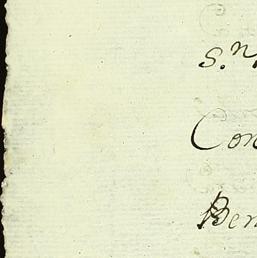 S.n
Con
Ben